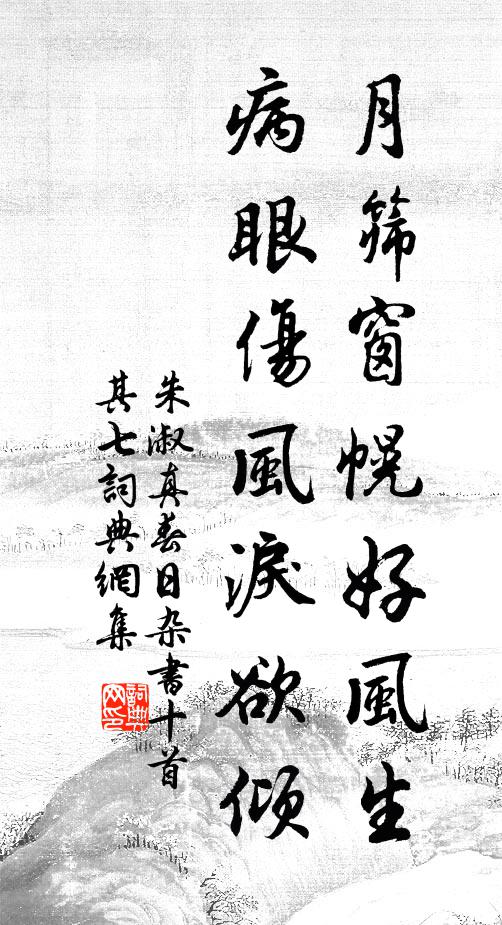 月篩窗幌好風生
病眼傷風淚欲傾
朱淑真春日杂書十首
其七詞典網集
詞典網印